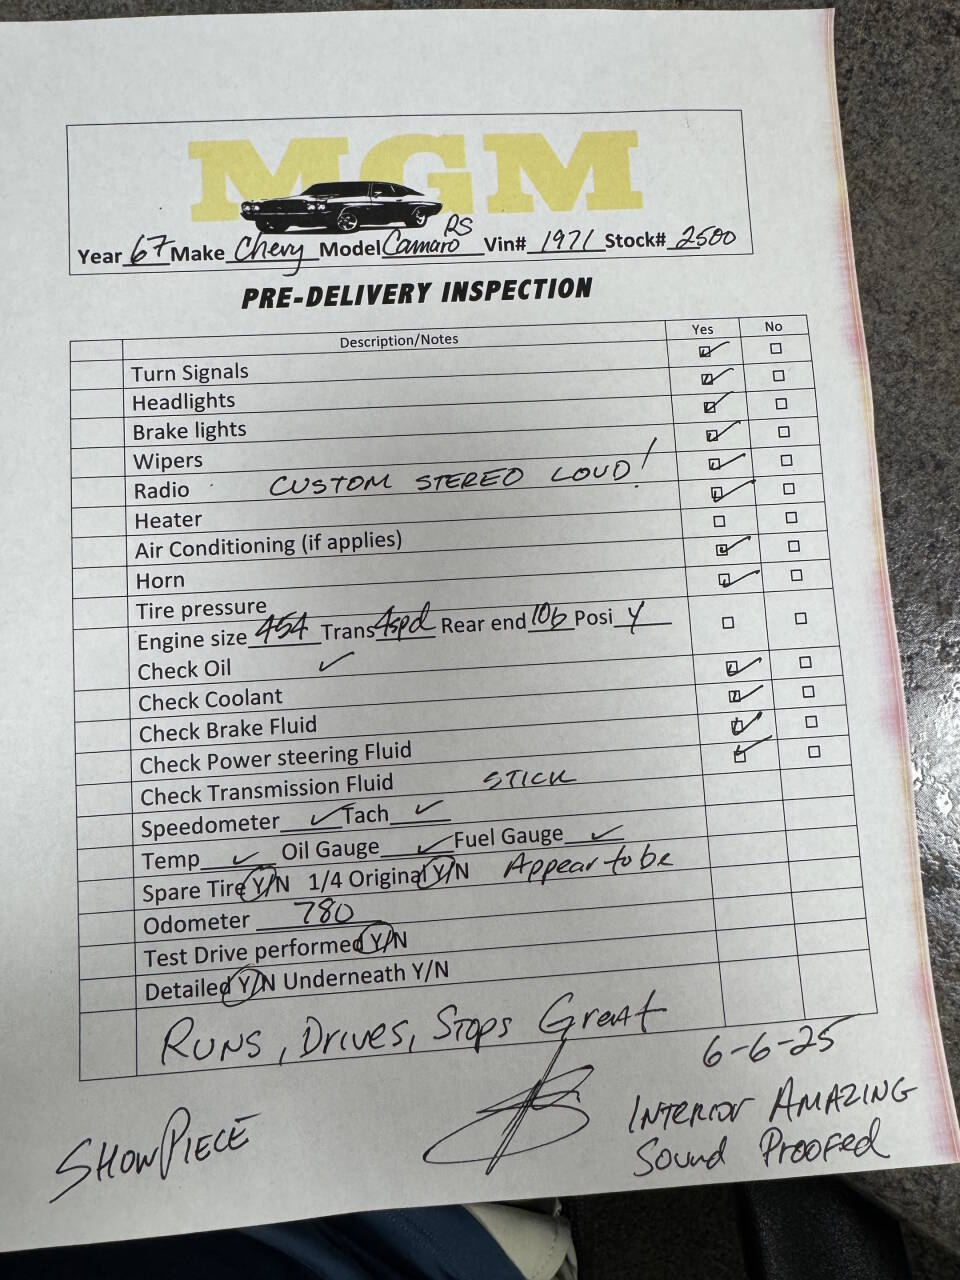 MGM
Year 67 Make Chevy Model Camaro RS Vin# 1971 Stock# 2500
PRE-DELIVERY INSPECTION
Description/Notes Yes No
Turn Signals
Headlights
Brake lights
Wipers
Radio CUSTOM STEREO LOUD!
Heater
Air Conditioning (if applies)
Horn
Tire pressure
Engine size 454 Trans 4spd Rear end 10b Posi Y
Check Oil
Check Coolant
Check Brake Fluid
Check Power steering Fluid
Check Transmission Fluid STICK
Speedometer Tach
Temp Oil Gauge Fuel Gauge
Spare Tire Y/N 1/4 Original Y/N Appear to be
Odometer 780
Test Drive performed Y/N
Detailed Y/N Underneath Y/N
RUNS, DRIVES, STOPS Great
6-6-25
SHOWPIECE
INTERIOR AMAZING
Sound Proofed